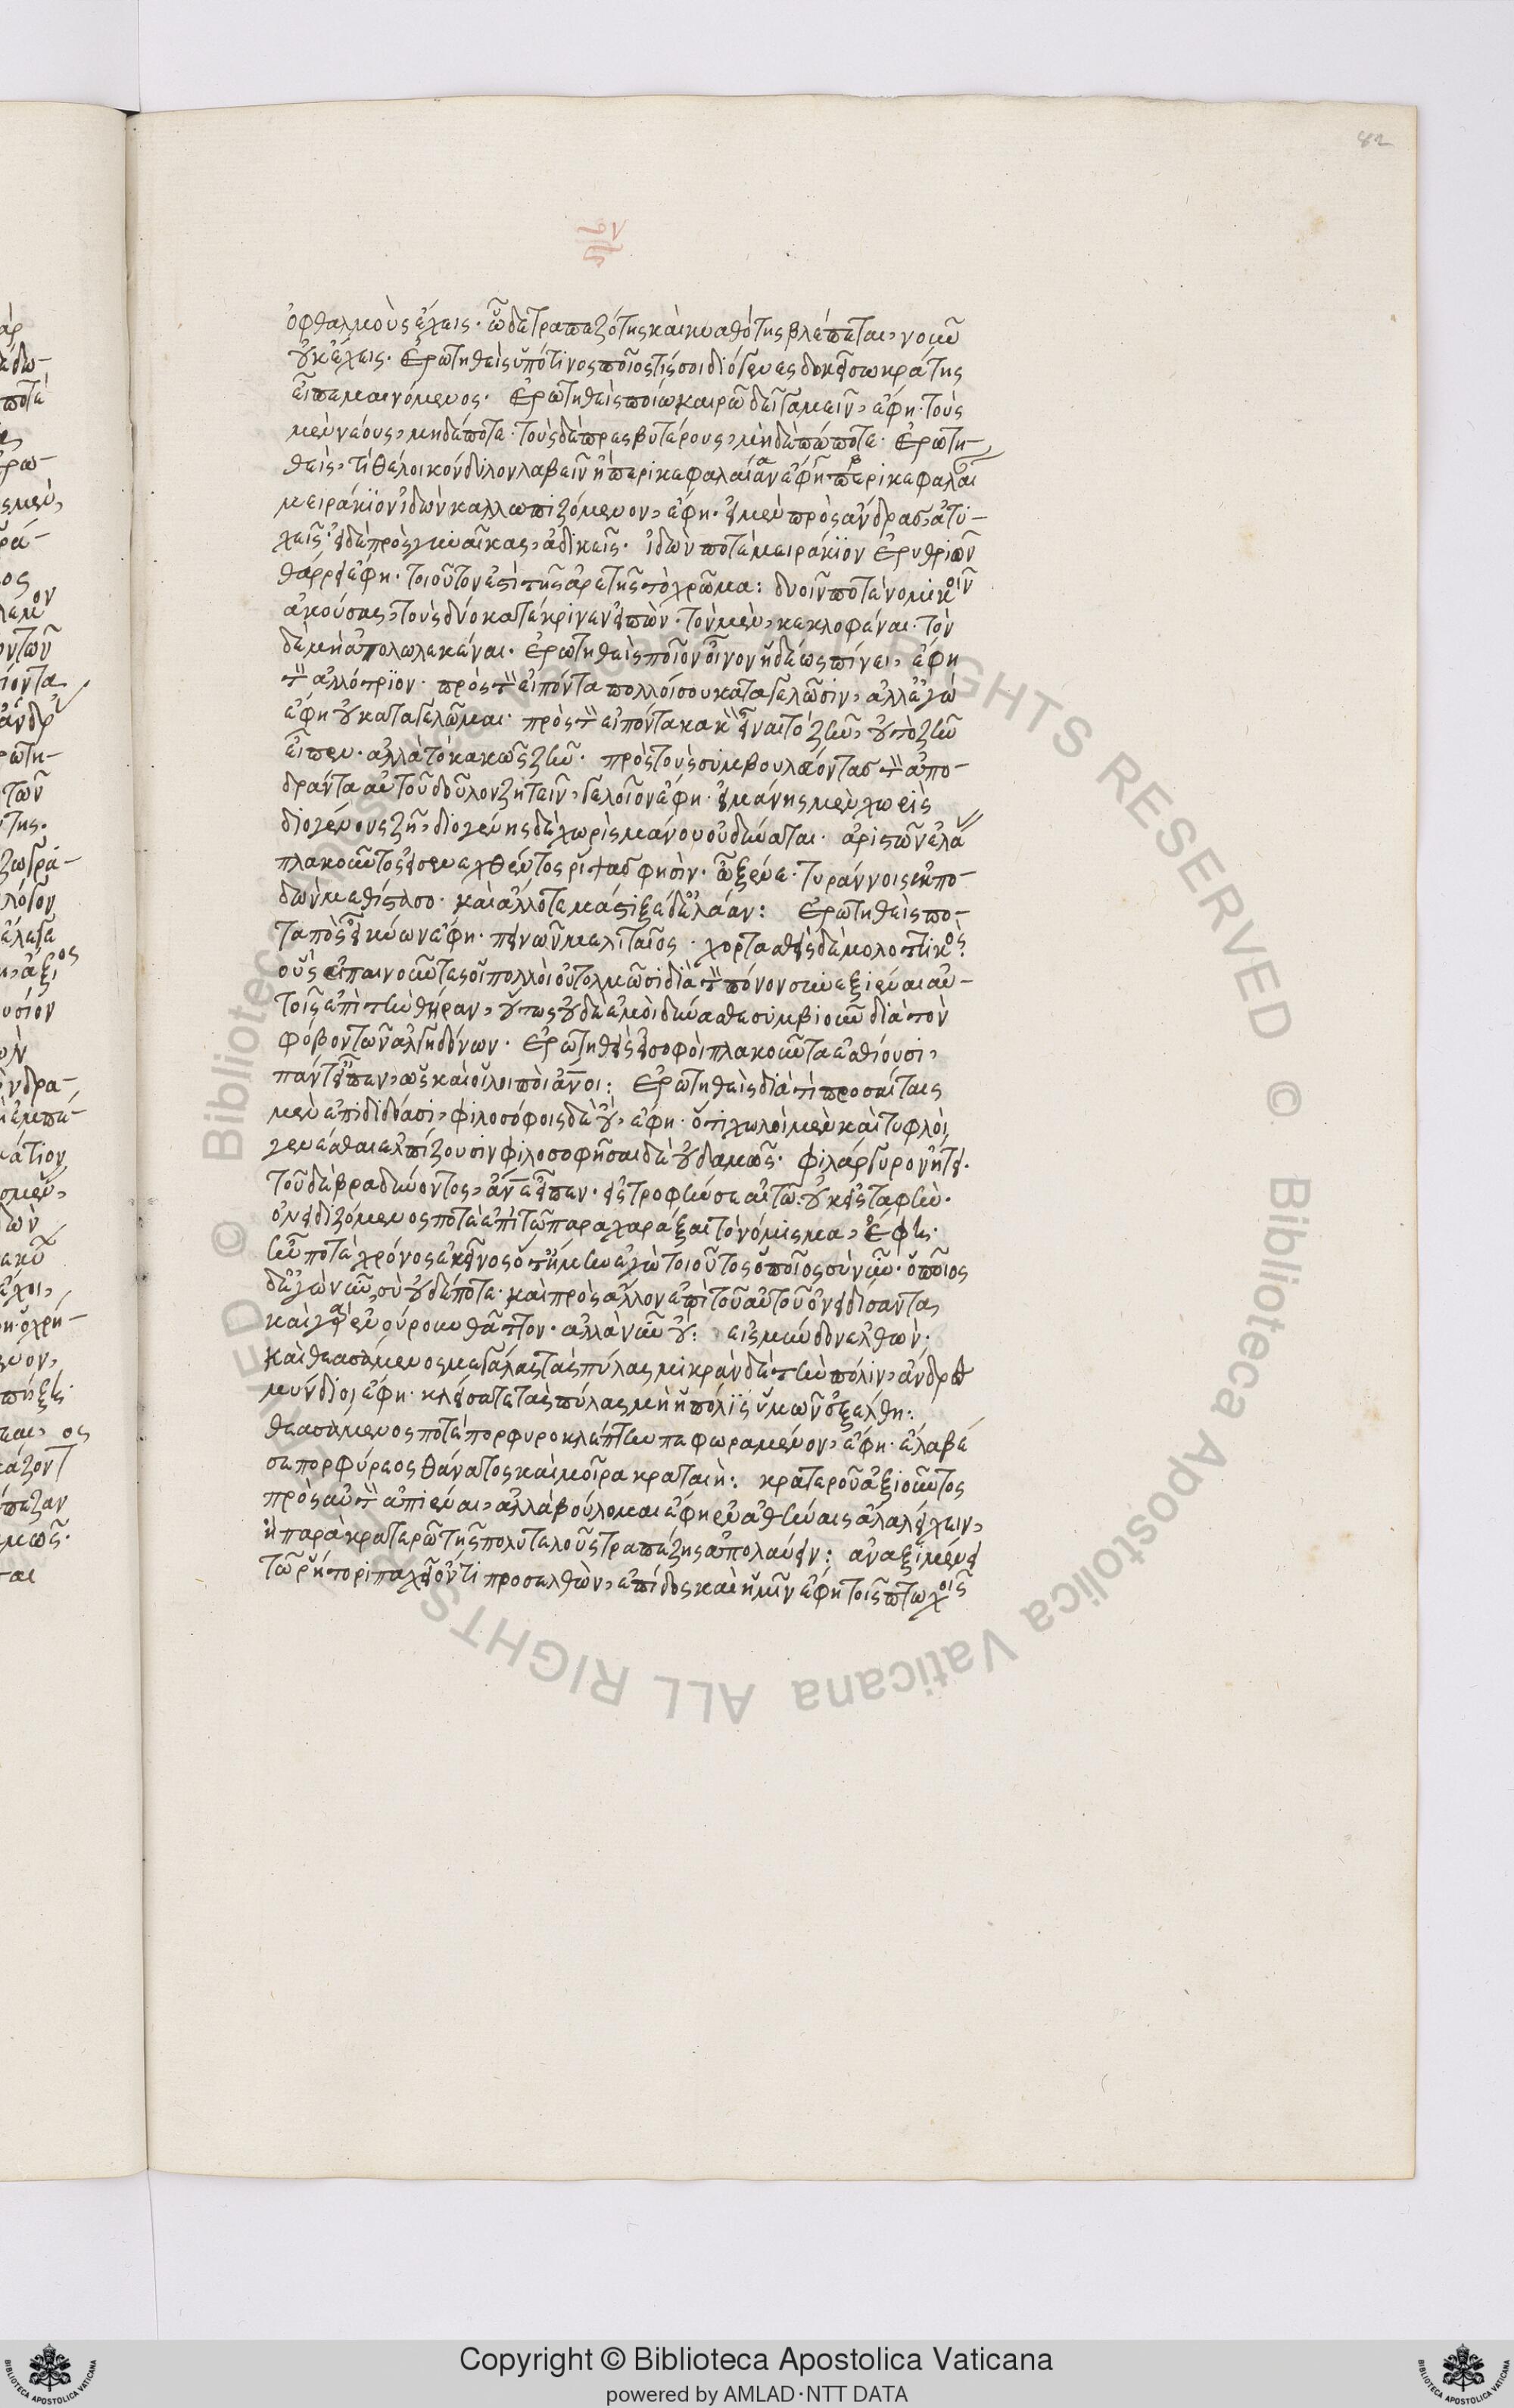 82
ὀφθαλμοὺς ἔχεις. ᾧ δὲ τραπεζότης καὶ κυαθότης βλέπεται, νοῦν
οὐκ ἔχεις. Ἐρωτηθεὶς ὑπό τινος ποῖος τίς σοι διόγενες δοκεῖ σωκράτης
εἶπε μαινόμενος. Ἐρωτηθεὶς ποίω καιρῶ δεῖ γαμεῖν, ἔφη. τοὺς
μὲν νέους, μηδέποτε. τοὺς δὲ πρεσβυτέρους, μὴδὲ πώποτε. Ἐρωτη-
θεὶς, τί θέλοι κόνδυλον λαβεῖν ἢ περικεφαλαίαν ἔφη περικεφαλαι
μειράκϊον ἰδὼν καλλωπιζόμενον, ἔφη. εἰ μὲν πρὸς ἄνδρας, ἀτυ-
χεῖς. εἰ δὲ πρὸς γυναῖκας, ἀδικεῖς. ἰδών ποτε μειράκϊον ἐρυθριῶν
θάρρει ἔφη. τοιοῦτον ἐστὶ τῆς ἀρετῆς τὸ χρῶμα: δυοῖν ποτε νομικοῖν
ἀκούσας, τοὺς δύο κατέκρινεν εἰπὼν. τὸν μὲν, κεκλοφέναι. τὸν
δὲ μὴ ἀπολωλεκέναι. ἐρωτηθεὶς ποῖον οἶνον ἡδέως πίνει, ἔφη
τὸν ἀλλότρϊον. πρὸς τὸν εἰπόντα πολλοί σου καταγελῶσιν, ἀλλ' ἐγὼ
ἔφη οὐ καταγελῶμαι. πρὸς τὸν εἰπόντα κακὸν εἶναι τὸ ζῆν, οὐ τὸ ζῆν
εἶπεν. ἀλλὰ τὸ κακῶς ζῆν. πρὸς τοὺς συμβουλεύοντας τὸν ἀπο-
δράντα αὐτοῦ δοῦλον ζητεῖν, γελοῖον ἔφη. εἰ μάνης μὲν χωρὶς
διογένους ζῆ, διογένης δὲ χωρὶς μάνου οὐ δύναται. ἀριστῶν ἐλά
πλακοῦντος ἐπενεχθέντος ῥίψας φησὶν. ὦ ξένε. τυράννοις ἐκπο-
δὼν μεθίστασο. καὶ ἄλλοτε μάστιξε δ' ἐλάαν: Ἐρωτηθεὶς πο-
ταπὸς εἴη κύων ἔφη. πεινῶν μελιταῖος. χορτασθεὶς δὲ μολοττικὸς:
οὓς ἐπαινοῦντες οἱ πολλοὶ οὐ τολμῶσι διὰ τὸν πόνον συνεξιέναι αὐ-
τοῖς ἐπὶ τὴν θήραν, οὕτως οὐδὲ ἐμοὶ δύνασθε συμβιοῦν διὰ τὸν
φόβον τῶν ἀλγηδόνων. Ἐρωτηθεὶς εἰ σοφοὶ πλακοῦντα ἐσθίουσι,
πάντ' εἶπεν, ὡς καὶ οἱ λοιποὶ ἄνοι: Ἐρωτηθεὶς διὰ τί προσαίταις
μὲν ἐπιδιδόασι, φιλοσόφοις δὲ οὐ, ἔφη. ὅτι χωλοὶ μὲν καὶ τυφλοὶ
γενέσθαι ἐλπίζουσιν φιλοσοφῆσαι δὲ οὐδαμῶς. φιλάργυρον ἤτει.
τοῦ δὲ βραδύνοντος, ἄνε εἶπεν. εἰς τροφήν σε αἰτῶ. οὐκ εἰς ταφὴν.
ὀνειδιζόμενός ποτε ἐπὶ τῶ παραχαράξαι τὸ νόμισμα, ἔφη.
ἦν ποτε χρόνος ἐκεῖνος ὅτ' ἤμην ἐγὼ τοιοῦτος ὁποῖος σὺ νῦν. ὁποῖος
δ' ἐγὼ νῦν, σὺ οὐδέποτε. καὶ πρὸς ἄλλον ἐπὶ τοῦ αὐτοῦ ὀνειδίσαντα,
καὶ γὰρ ἐνούρουν θᾶττον. ἀλλὰ νῦν οὐ: εἰς μύνδον ἐλθὼν.
καὶ θεασάμενος μεγάλας τὰς πύλας μικρὰν δὲ τὴν πόλιν, ἄνδρες
μύνδιοι ἔφη. κλείσατε τὰς πύλας μὴ ἡ πόλϊς ὑμῶν ἐξέλθη:
θεασάμενός ποτε πορφυροκλέπτην πεφωραμένον, ἔφη. ἔλαβέ
σε πορφύρεος θάνατος καὶ μοῖρα κραταιὴ: κρατεροῦ ἀξιοῦντος
πρὸς αὐτὸν ἀπιέναι, ἀλλὰ βούλομαι ἔφη ἐν ἀθήναις ἅλα λείχειν,
ἢ παρὰ κρατερῶ τῆς πολυτελοῦς τραπέζης ἀπολαύειν: ἀναξιμένει
τῶ ῥήτορι παχεῖ ὄντι προσελθὼν, ἐπίδος καὶ ἡμῖν ἔφη τοῖς πτωχοῖς
Copyright © Biblioteca Apostolica Vaticana
powered by AMLAD·NTT DATA